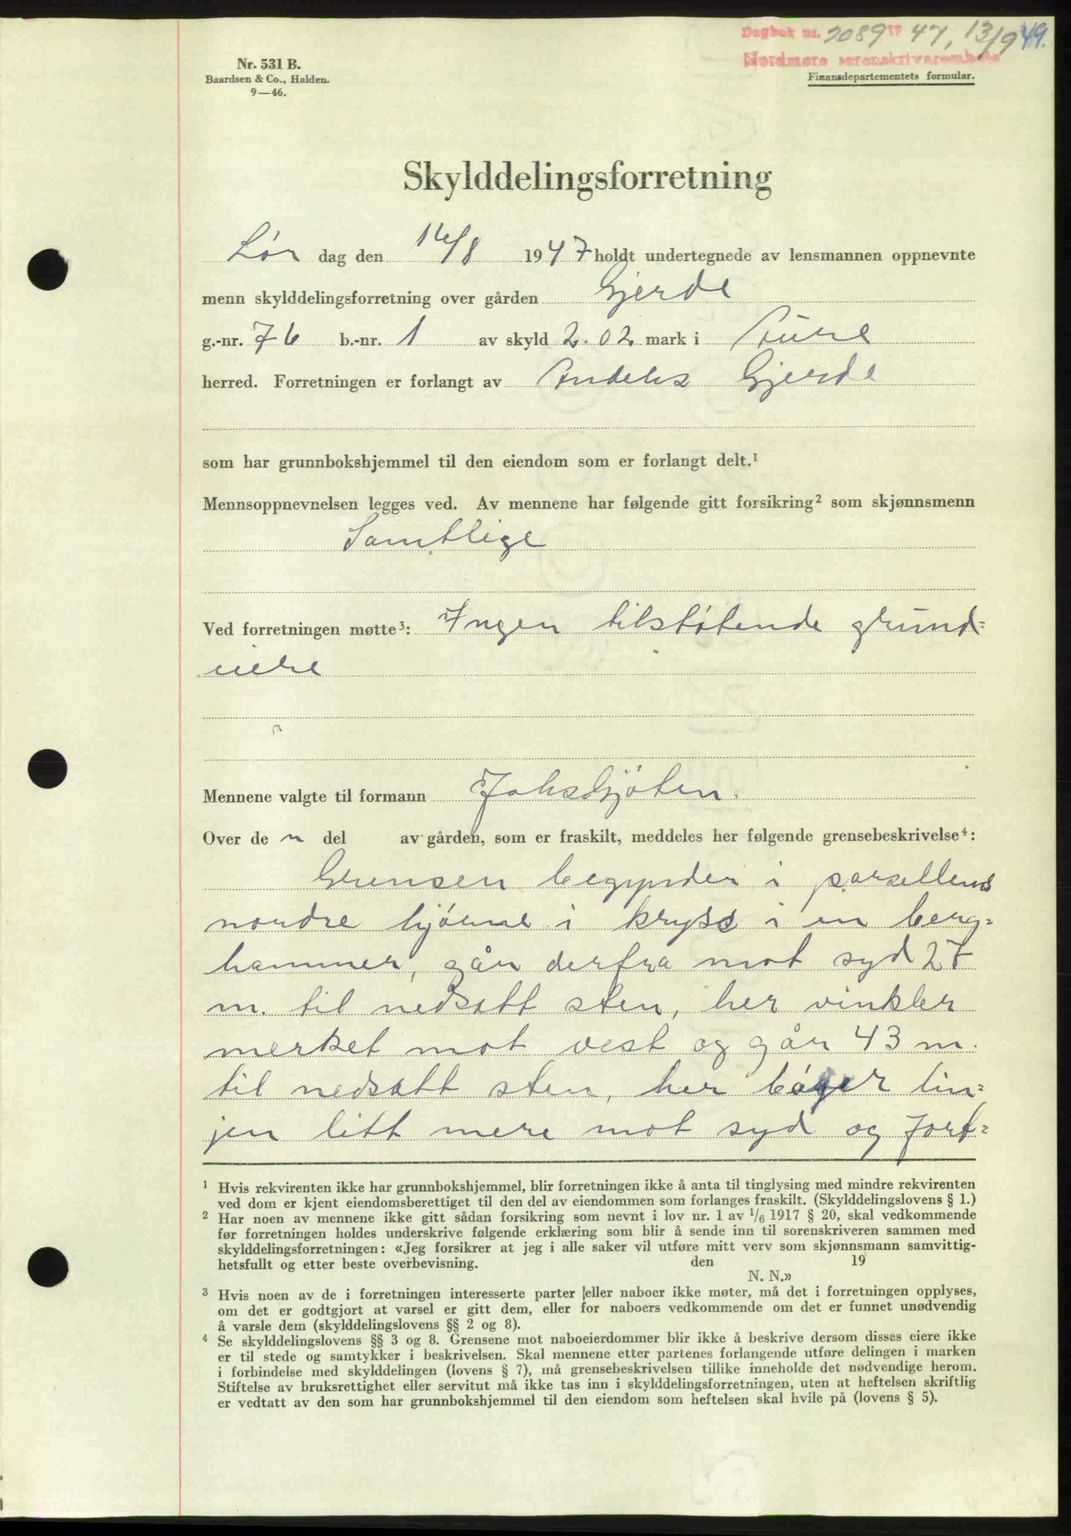 Dagbok nr. 2089 19 47, 13/9 49.
Nordmøre sorenskriverembede
Nr. 531 B.
Baardsen & Co., Halden.
9—46.
Finansdepartementets formular.
Skylddelingsforretning
Lør dag den 16/8 1947 holdt undertegnede av lensmannen oppnevnte
menn skylddelingsforretning over gården Gjerde
g.-nr. 76 b.-nr. 1 av skyld 2.02 mark i Aure
herred. Forretningen er forlangt av Anders Gjerde
som har grunnbokshjemmel til den eiendom som er forlangt delt.¹
Mennsoppnevnelsen legges ved. Av mennene har følgende gitt forsikring² som skjønnsmenn
Samtlige
Ved forretningen møtte³: Ingen tilstøtende grund=
eiere
Mennene valgte til formann
Over de n del av gården, som er fraskilt, meddeles her følgende grensebeskrivelse⁴:
Grensen begynder i parsellens
nordre hjørne i kryss i en berg=
hammer, går derfra mot syd 27
m. til nedsatt sten, her vinkler
merket mot vest og går 43 m.
til nedsatt sten, her bøyer lin=
jen litt mere mot syd og fort=
¹ Hvis rekvirenten ikke har grunnbokshjemmel, blir forretningen ikke å anta til tinglysing med mindre rekvirenten
ved dom er kjent eiendomsberettiget til den del av eiendommen som forlanges fraskilt. (Skylddelingslovens § 1.)
² Har noen av mennene ikke gitt sådan forsikring som nevnt i lov nr. 1 av 1/6 1917 § 20, skal vedkommende
før forretningen holdes underskrive følgende erklæring som blir å sende inn til sorenskriveren sammen med
skylddelingsforretningen: «Jeg forsikrer at jeg i alle saker vil utføre mitt verv som skjønnsmann samvittig-
hetsfullt og etter beste overbevisning. den 19
N. N.»
³ Hvis noen av de i forretningen interesserte parter eller naboer ikke møter, må det i forretningen opplyses,
om det er godtgjort at varsel er gitt dem, eller for naboers vedkommende om det er funnet unødvendig
å varsle dem (skylddelingslovens §§ 2 og 8).
⁴ Se skylddelingslovens §§ 3 og 8. Grensene mot naboeierdommer blir ikke å beskrive dersom disses eiere ikke
er til stede og samtykker i beskrivelsen. Skal mennene etter partenes forlangende utføre delingen i marken
i forbindelse med skylddelingen (lovens § 7), må grensebeskrivelsen tillike inneholde det nødvendige herom.
Stiftelse av bruksrettighet eller servitut må ikke tas inn i skylddelingsforretningen, uten at heftelsen skriftlig
er vedtatt av den som har grunnbokshjemmel til den eiendom som heftelsen skal hvile på (lovens § 5).